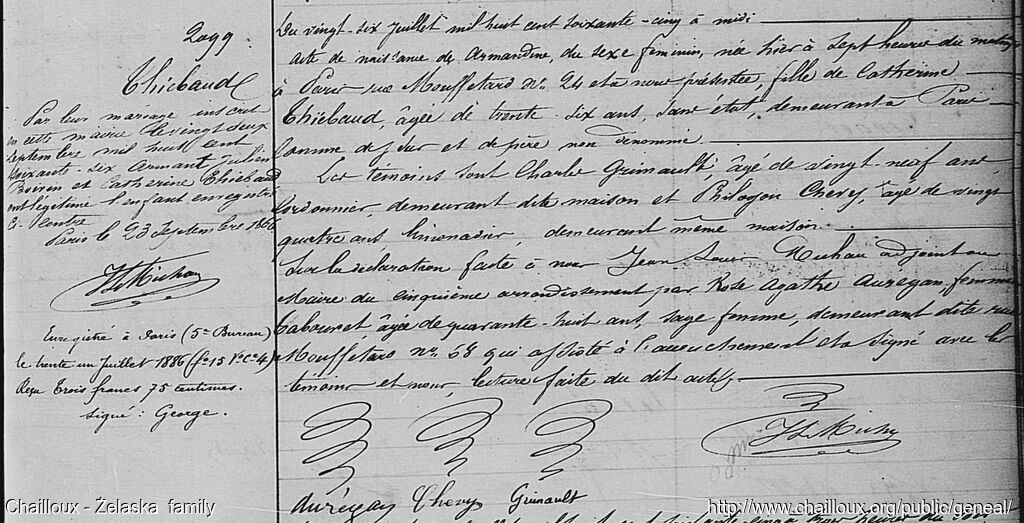 2099.
Thiebaud
Par leur mariage inscrit
en cette mairie le vingt deux
septembre mil huit cent
soixante-six Armant Julien
et Catherine Thiebaud
ont légitimé l'enfant enregistré
ci-contre
Paris le 23 septembre 1866
Enregistré à Paris (5e Bureau)
le trente un Juillet 1886 (fo 15 Vo C. 4)
Reçu Trois francs 75 centimes.
signé : George.
Du vingt-six Juillet mil huit cent soixante-cinq à midi
acte de naissance de Armandine, du sexe féminin, née hier à sept heures du matin
à Paris rue Mouffetard no 24 et à nous présentée, fille de Catherine
Thiebaud, âgée de trente-six ans, sans état, demeurant à Paris
comme dessus et de père non dénommé.
Les témoins sont Charles Grimault âgé de vingt-neuf ans
Cordonnier, demeurant dite maison et Philogon Chevy, âgé de vingt
quatre ans limonadier, demeurant même maison.
Sur la déclaration faite à nous Jean Louis Michau adjoint au
Maire du cinquième arrondissement par Rose Agathe Aurégan femme
Tabouret âgée de quarante-huit ans, sage femme, demeurant dite rue
Mouffetard no 68 qui a assisté à l'accouchement et a signé avec les
témoins et nous, lecture faite du dit acte,
Aurégan Chevy Grimault
Chailloux - Želaska family
http://www.chailloux.org/public/geneal/